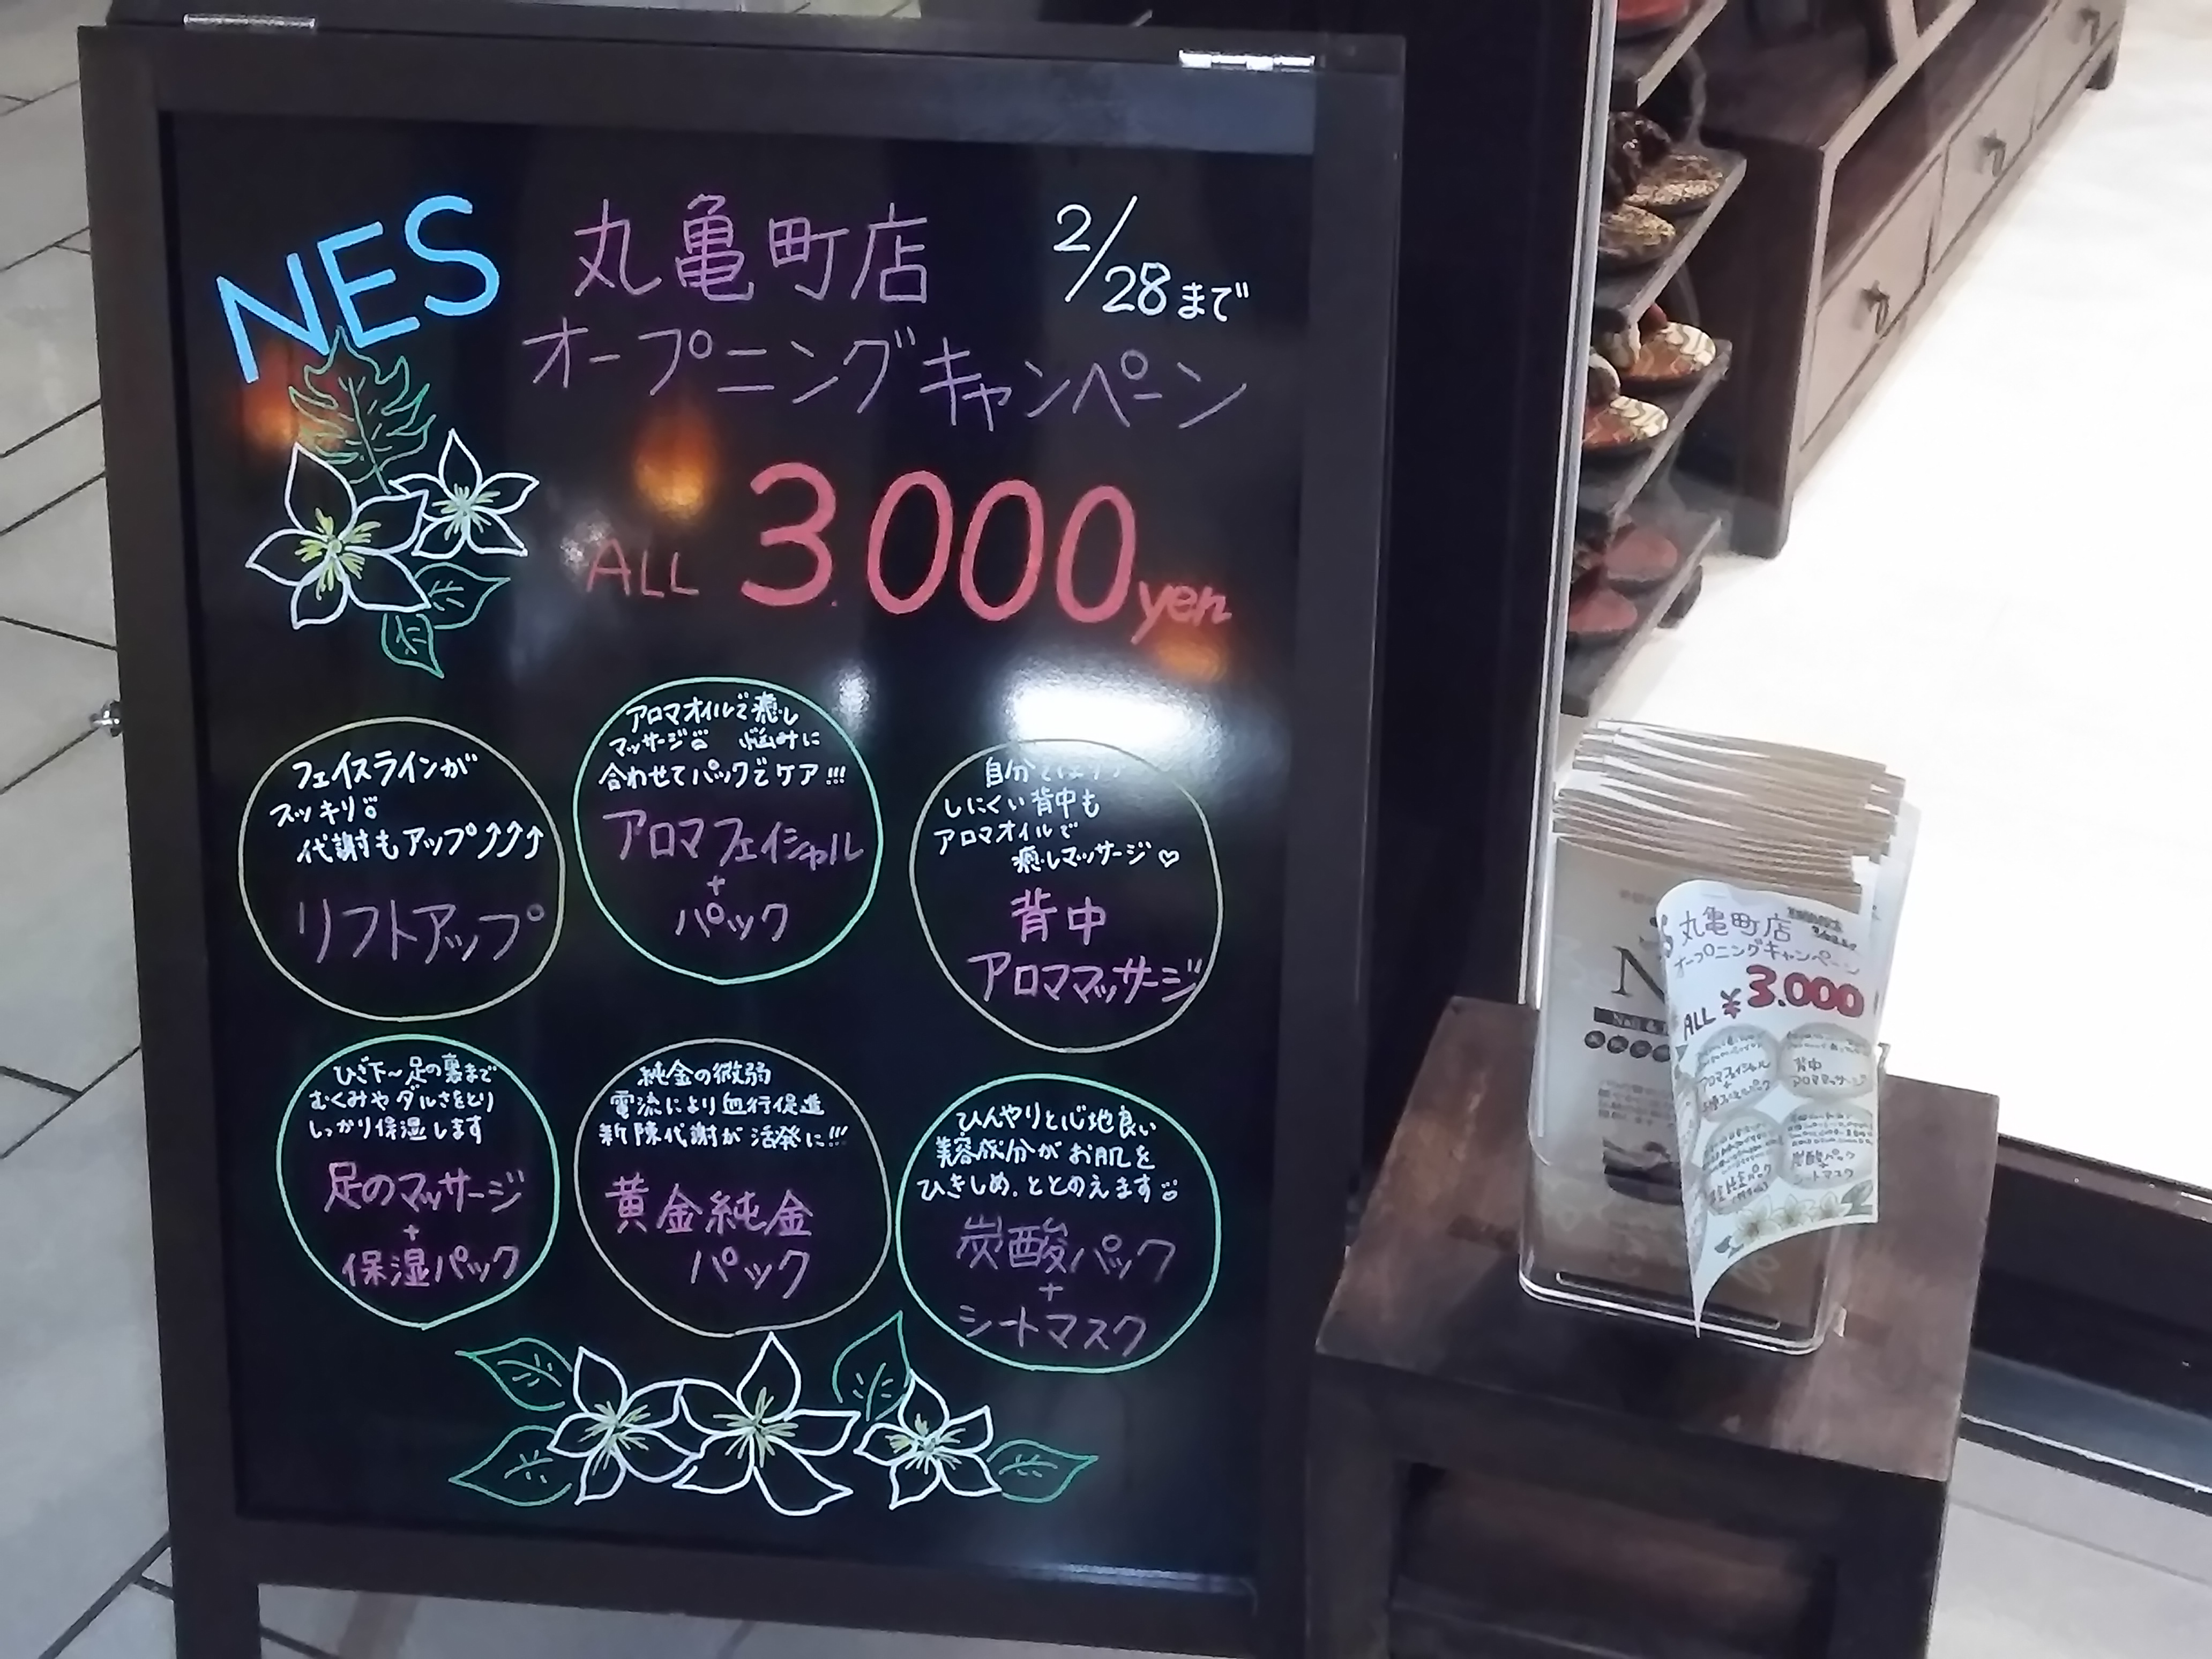 NES
丸亀町店
2/28まで
オープニングキャンペーン
ALL 3.000yen
フェイスラインが
スッキリ
代謝もアップ↑↑↑
リフトアップ
アロマオイルで癒し
マッサージ 悩みに
合わせてパックでケア!!!
アロマフェイシャル
+
パック
自分では
しにくい背中も
アロマオイルで
癒しマッサージ♡
背中
アロママッサージ
ひざ下〜足の裏まで
むくみやダルさをとり
しっかり保湿します
足のマッサージ
+
保湿パック
純金の微弱
電流により血行促進
新陳代謝が活発に!!!
黄金純金
パック
ひんやりと心地良い
美容成分がお肌を
ひきしめ、ととのえます
炭酸パック
+
シートマスク
丸亀町店
オープニングキャンペーン
ALL ¥3.000
アロマフェイシャル
+
背中
アロママッサージ
炭酸パック
+
シートマスク